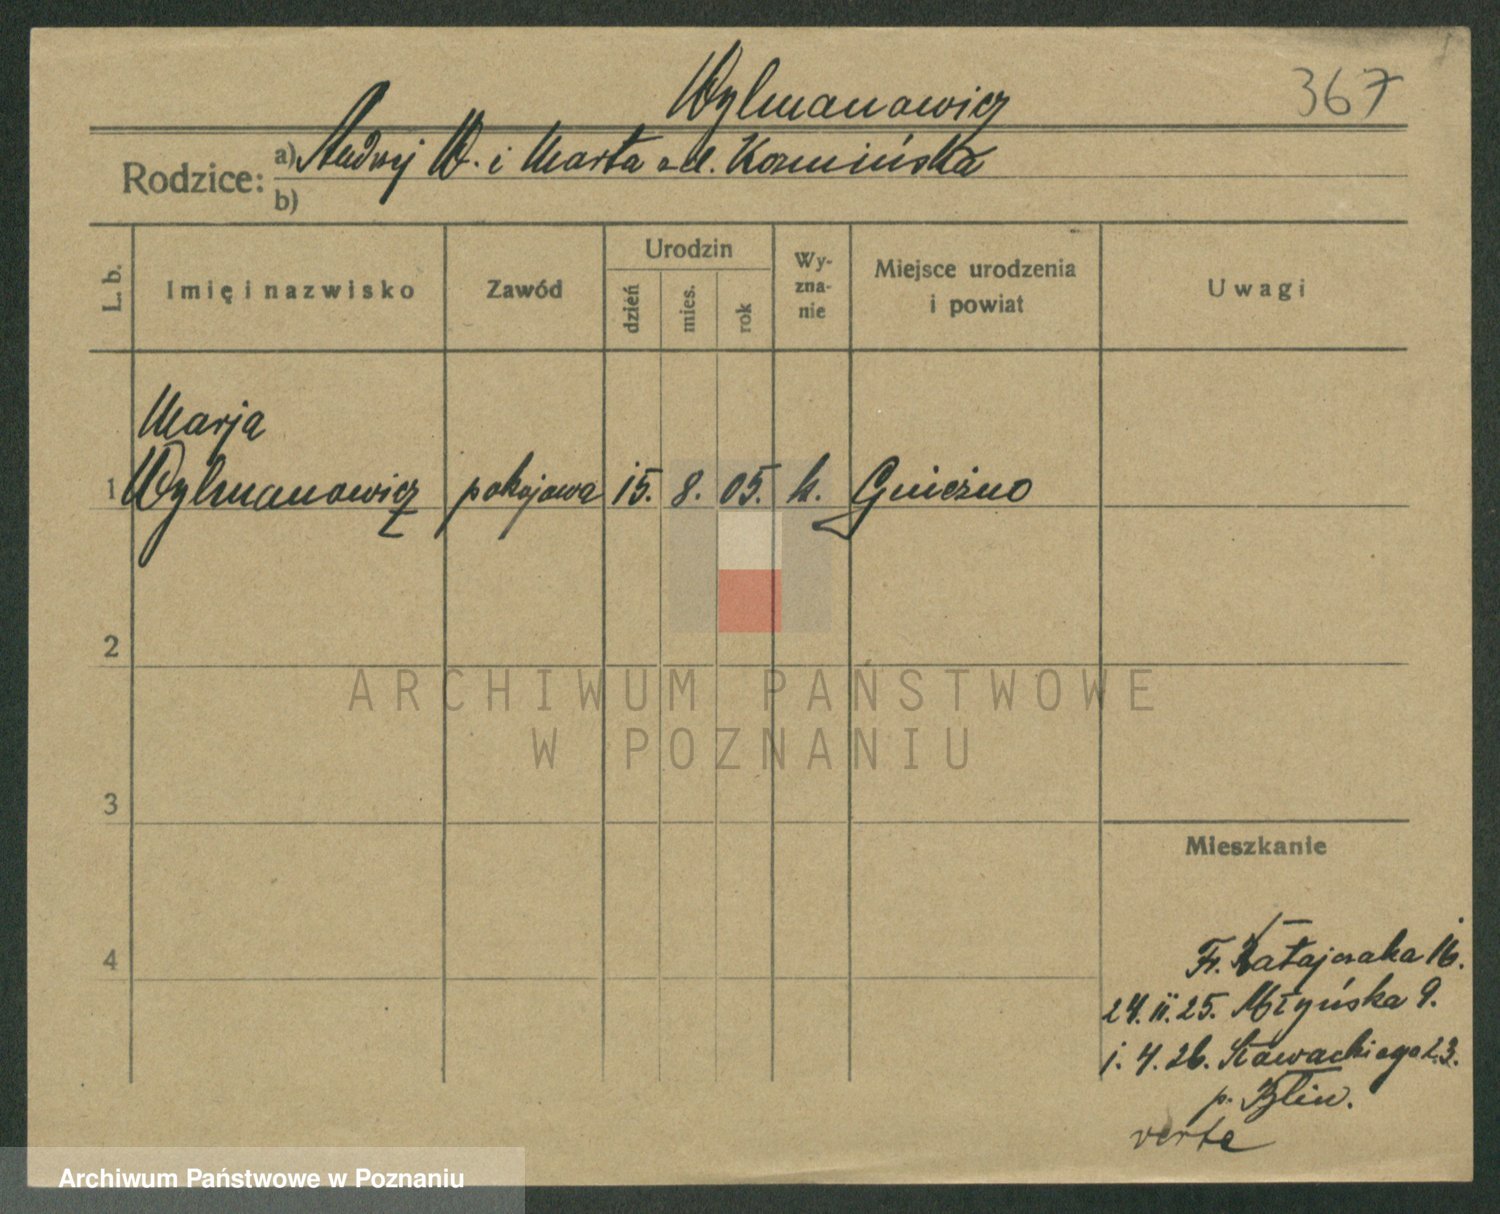 Wylmanowicz
367
Rodzice: a) Andrzej W. i Marta z d. Kozmińska
b)
L. b.
Imię i nazwisko
Zawód
Urodzin
dzień
mies.
rok
Wy-
zna-
nie
Miejsce urodzenia
i powiat
Uwagi
Marja
1 Wylmanowicz pokojowa 15. 8. 05. k. Gniezno
2
ARCHIWUM PAŃSTWOWE
W POZNANIU
3
Mieszkanie
4
Fr. Ratajczaka 16.
24.II.25. Młyńska 9.
1.4.26. Słowackiego 23.
p.
verte
Archiwum Państwowe w Poznaniu